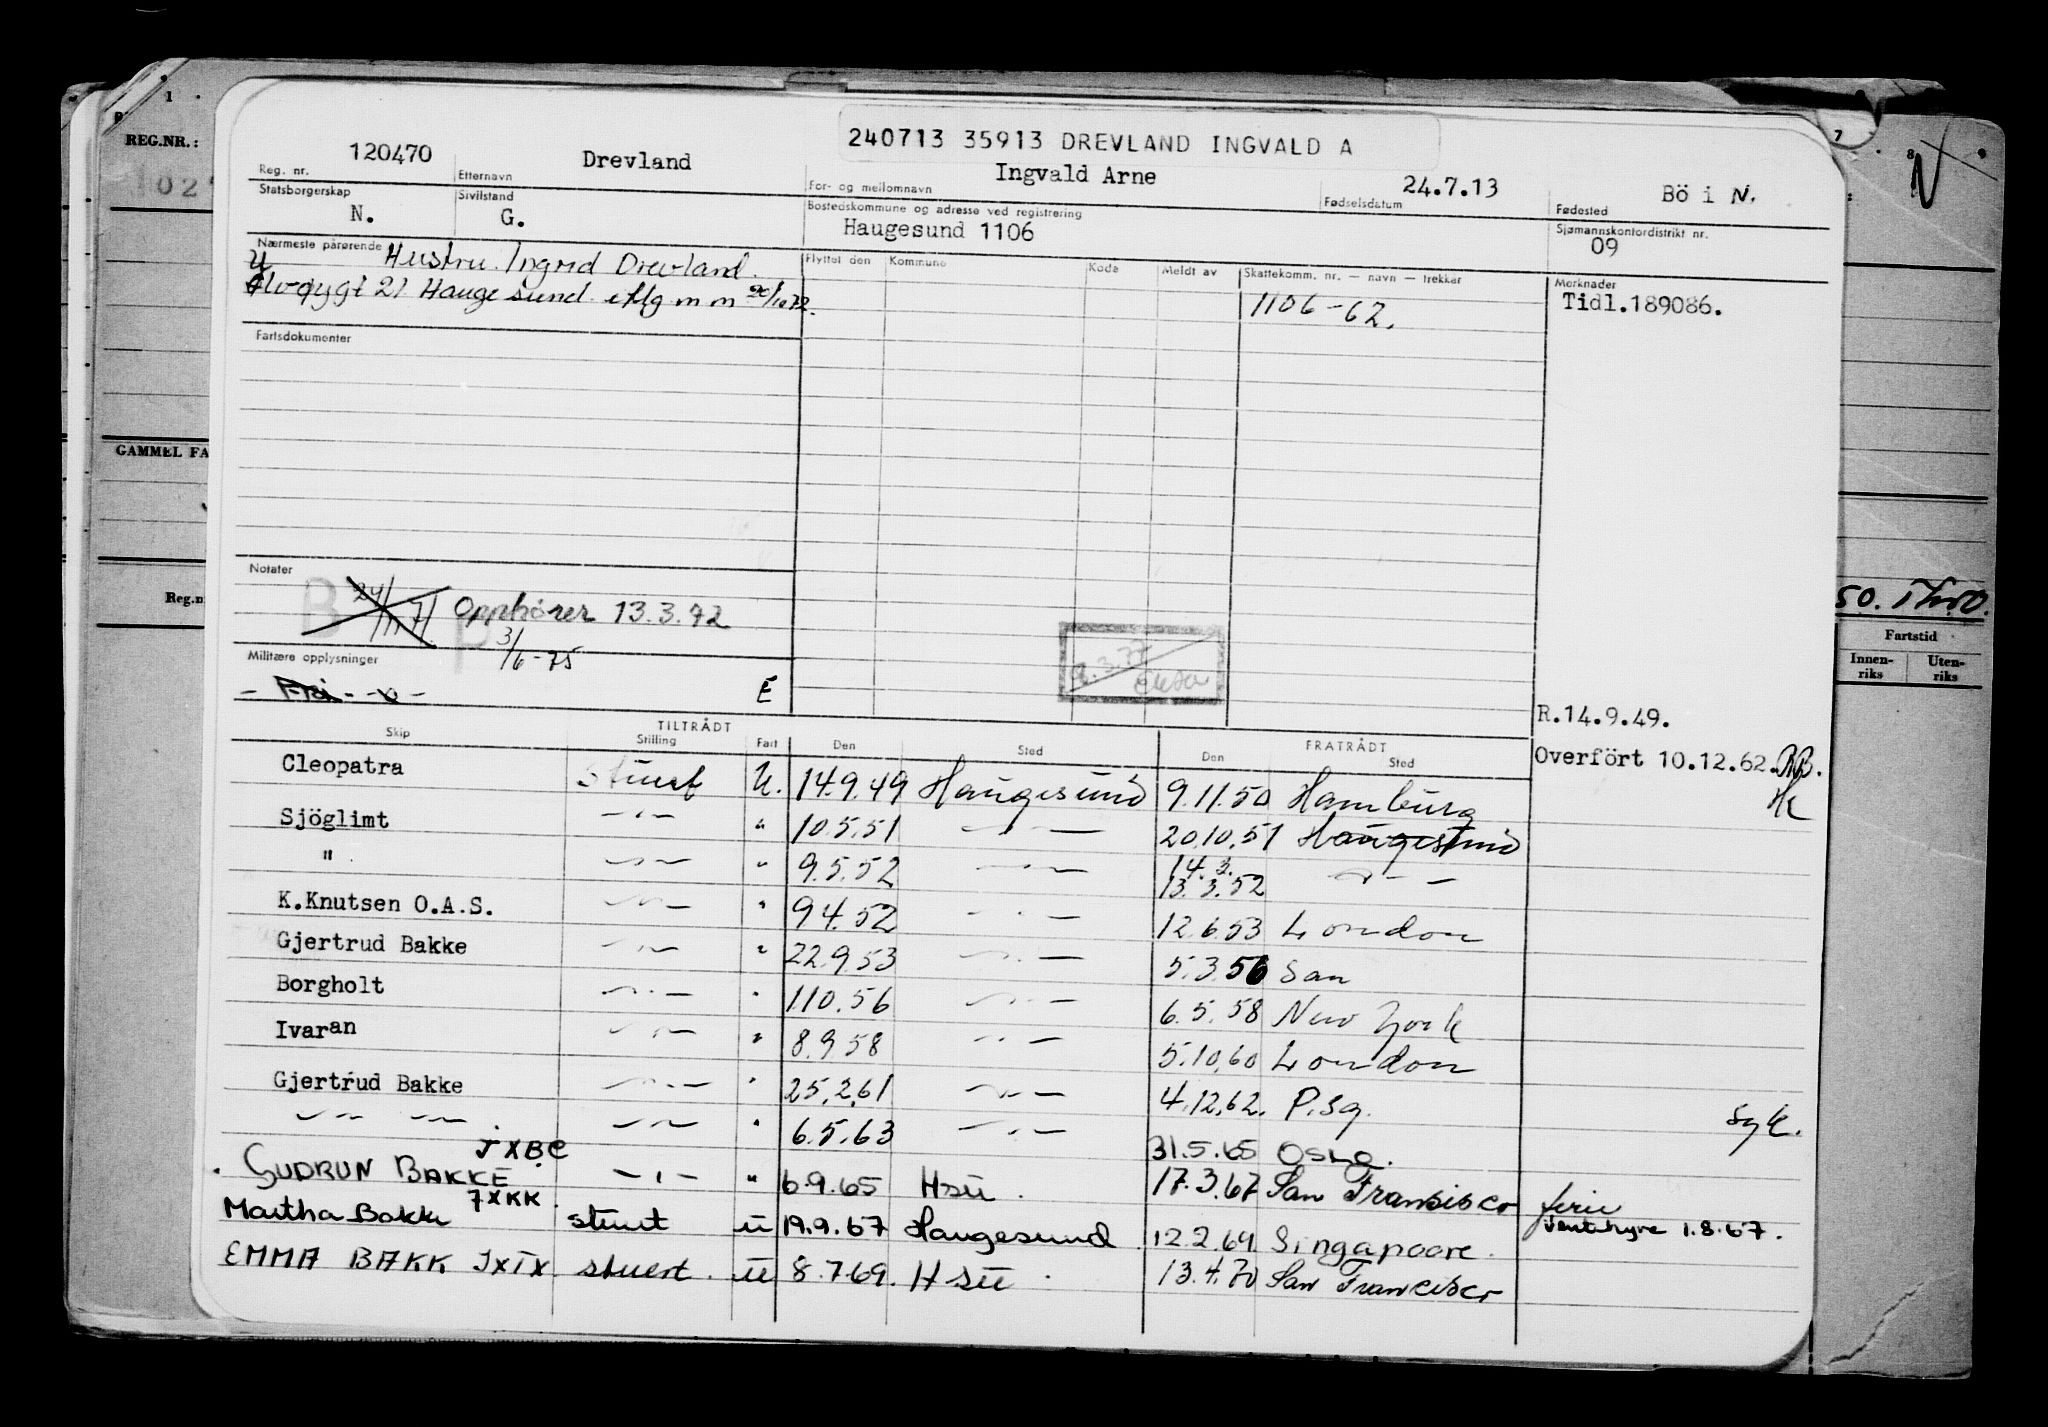 240713 35913 DREVLAND INGVALD A
REG.NR.:
Reg. nr. 120470 Etternavn Drevland For- og mellomnavn Ingvald Arne Fødselsdatum 24.7.13 Fødested Bö i N.
Statsborgerskap N. Sivilstand G. Bostedskommune og adresse ved registrering Haugesund 1106 Sjømannskontordistrikt nr. 09
Nærmeste pårørende Hustru. Ingrid Drevland.
21 Haugesund
Flyttet den Kommune Kode Meldt av Skattekomm. nr. — navn — trekker Merknader
1106-62. Tidl.189086.
Fartsdokumenter
GAMMEL FA
Notater
B 24/11 71 Opphører 13.3.72
3/6-75
Militære opplysninger
- Fri - E
R.14.9.49.
Overfört 10.12.62.
TILTRÅDT FRATRÅDT
Skip Stilling Fart Den Sted Den Sted
Cleopatra Stuert U. 14.9.49 Haugesund 9.11.50 Hamburg
Sjöglimt -"- " 10.5.51 -"- 20.10.51 Haugesund
" -"- " 9.5.52 -"- 14.3. 13.3.52 -"-
K.Knutsen O.A.S. -"- " 9.4.52 -"- 12.6.53 London
Gjertrud Bakke -"- " 22.9.53 -"- 5.3.56 San
Borgholt -"- " 1.10.56 -"- 6.5.58 New York
Ivaran -"- " 8.9.58 -"- 5.10.60 London
Gjertrud Bakke -"- " 25.2.61 -"- 4.12.62. P.sg. Syk.
-"- -"- -"- " 6.5.63 -"- 31.5.65 Oslo.
GUDRUN BAKKE JXBC -"- " 6.9.65 Hsu. 17.3.67 San Fransisco ferie
Martha Bakke JXKK. stuert u 19.9.67 Haugesund 12.2.69 Singapore. Ventehyre 1.8.67.
EMMA BAKK JXIX stuert. u 8.7.69. Hsu. 13.4.70 San Francisco
Reg.n
Fartstid
Innen-
riks
Uten-
riks